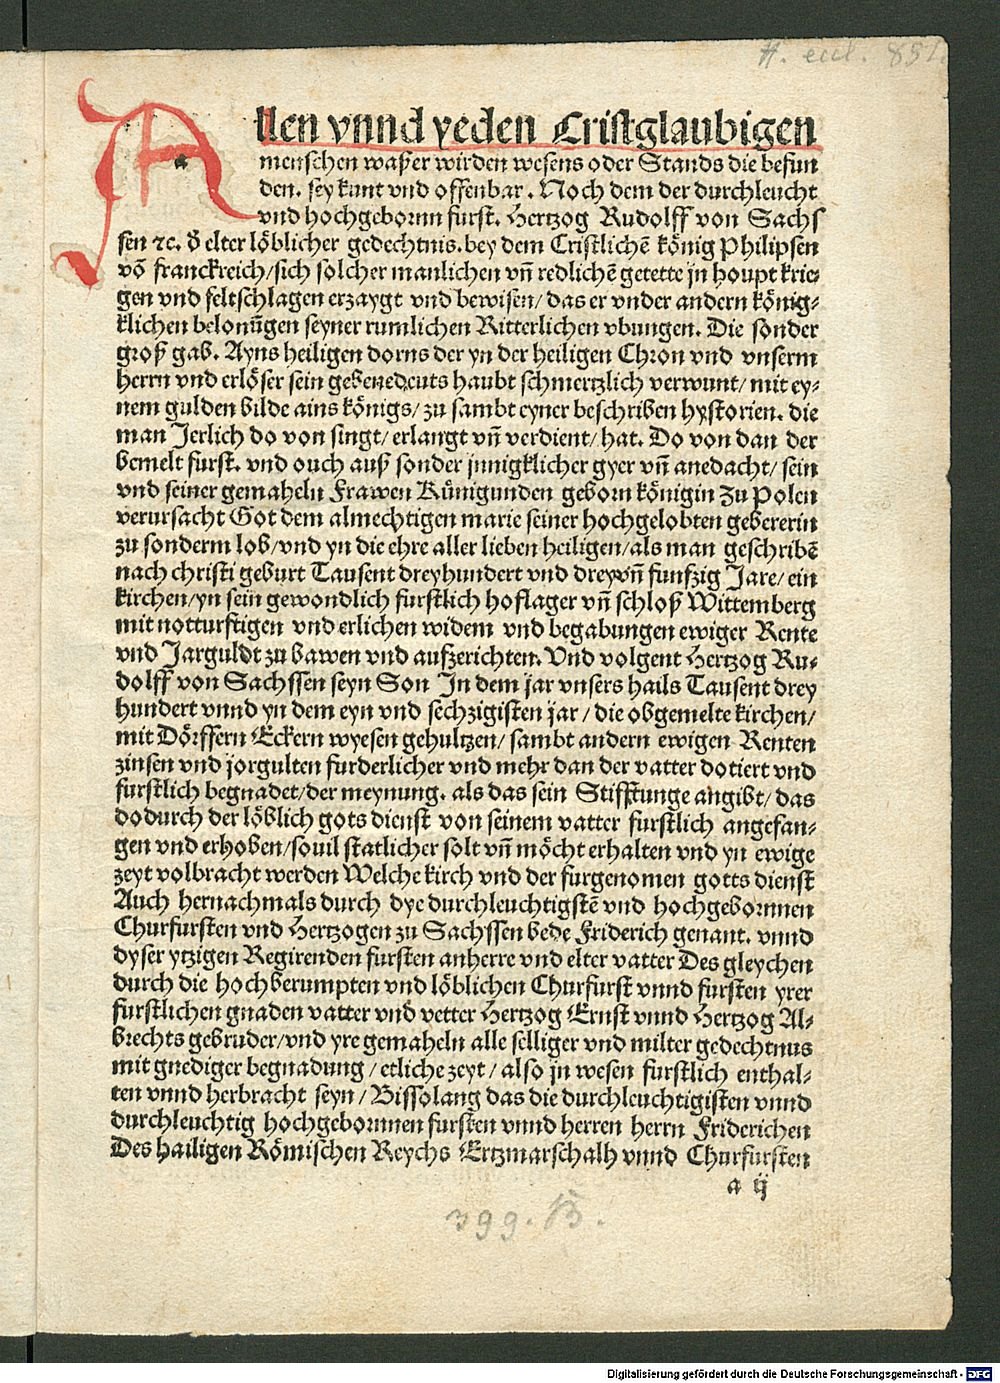 H. eccl. 851.
Allen vnnd yeden Cristglaubigen
menschen waßer wirden wesens oder Stands die besun
den. sey kunt vnd offenbar. Noch dem der durchleucht
vnd hochgebornn furst. Hertzog Rudolff von Sachs
sen ꝛc. d̕ elter löblicher gedechtnis. bey dem Cristlichē könig Philipsen
vō franckreich/sich solcher manlichen vn̄ redlichē getette jn houpt krie
gen vnd feltschlagen erzaygt vnd bewisen/ das er vnder andern könig⸗
klichen belonūgen seyner rumlichen Ritterlichen vbungen. Die sonder
groß gab. Ayns heiligen dorns der yn der heiligen Chron vnd vnserm
herrn vnd erlöser sein gebenedeuts haubt schmertzlich verwunt/ mit ey⸗
nem gulden bilde ains königs/ zu sambt eyner beschriben hystorien. die
man Jerlich do von singt/ erlangt vn̄ verdient/ hat. Do von dan der
bemelt furst. vnd ouch auß sonder jnnigklicher gyer vn̄ anedacht/ sein
vnd seiner gemaheln Frawen Künigunden geborn königin Zu Polen
verursacht Got dem almechtigen marie seiner hochgelobten gebererin
zu sonderm lob/vnd yn die ehre aller lieben heiligen/als man geschribē
nach christi geburt Tausent dreyhundert vnd dreyvn̄ funfzig Jare/ ein
kirchen/yn sein gewondlich furstlich hoflager vn̄ schloß Wittemberg
mit notturftigen vnd erlichen widem vnd begabungen ewiger Rente
vnd Jarguldt zu bawen vnd aufzerichten. Vnd volgent Hertzog Ru⸗
dolff von Sachssen seyn Son In dem jar vnsers hails Tausent drey
hundert vnnd yn dem eyn vnd sechzigisten jar / die obgemelte kirchen/
mit Dörffern Eckern wyesen gehultzen/ sambt andern ewigen Renten
zinsen vnd jorgulten furderlicher vnd mehr dan der vatter dotiert vnd
furstlich begnadet/der meynung. als das sein Stifftunge angibt/ das
dodurch der löblich gots dienst von seinem vatter furstlich angefan⸗
gen vnd erhoben/souil statlicher solt vn̄ möcht erhalten vnd yn ewige
zeyt volbracht werden Welche kirch vnd der furgenomen gotts dienst
Auch hernachmals durch dye durchleuchtigstē vnd hochgebornnen
Churfursten vnd Hertzogen zu Sachssen bede Friderich genant. vnnd
dyser ytzigen Regirenden fursten anherre vnd elter vatter Des gleychen
durch die hochberumpten vnd löblichen Churfurst vnnd fursten yrer
furstlichen gnaden vatter vnd vetter Hertzog Ernst vnnd Hertzog Al⸗
brechts gebruder/vnd yre gemaheln alle selliger vnd milter gedechtnus
mit gnediger begnadung / etliche zeyt / also jn wesen furstlich enthal⸗
ten vnnd herbracht seyn / Bissolang das die durchleuchtigisten vnnd
durchleuchtig hochgebornnen fursten vnnd herren herrn Friderichen
Des hailigen Römischen Reychs Ertzmarschalh vnnd Churfursten
a ij
399. B.
Digitalisierung gefördert durch die Deutsche Forschungsgemeinschaft - DFG